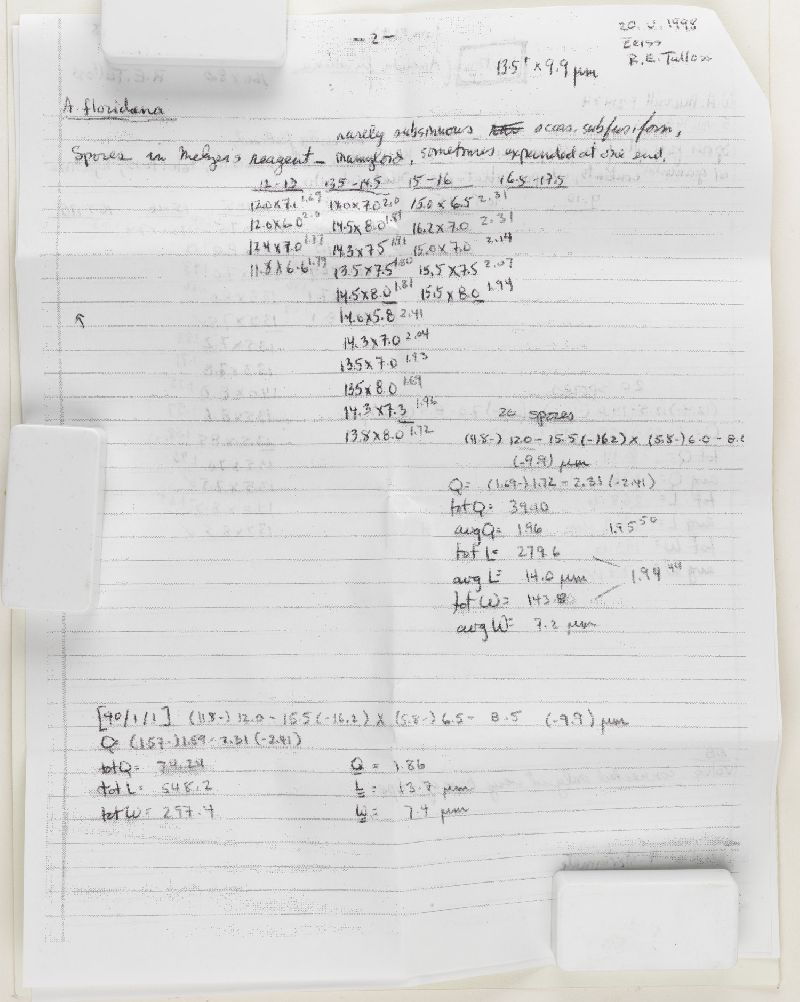 - 2 -
20. V. 1998
Zeiss
R.E. Tulloss
13.5+ x 9.9 µm
A. floridana
rarely subsinuous occas. subfusiform,
Spores in Melzer's reagent - inamyloid, sometimes expanded at one end.
12-13 13.5-14.5 15-16 16.5-17.5
12.0 x 7.1 1.69 14.0 x 7.0 2.0 15.0 x 6.5 2.31
12.0 x 6.0 2.0 14.5 x 8.0 1.81 16.2 x 7.0 2.31
12.4 x 7.0 1.77 14.3 x 7.5 1.91 15.0 x 7.0 2.14
11.8 x 6.6 1.79 13.5 x 7.5 1.80 15.5 x 7.5 2.07
14.5 x 8.0 1.81 15.5 x 8.0 1.94
14.0 x 5.8 2.41
14.3 x 7.0 2.04
13.5 x 7.0 1.93
13.5 x 8.0 1.69
14.3 x 7.3 1.96
13.8 x 8.0 1.72
20 spores
(11.8-) 12.0 - 15.5 (-16.2) x (5.8-) 6.0 - 8.0
(-9.9) µm
Q = (1.69-) 1.72 - 2.31 (-2.41)
tot Q = 39.10
avg Q = 1.96 1.95 50
tot L = 279.6
avg L = 14.0 µm 1.94 44
tot W = 143.8
avg W = 7.2 µm
[40/1/1] (11.8-) 12.0 - 15.5 (-16.2) x (5.8-) 6.5 - 8.5 (-9.9) µm
Q = (1.57-) 1.59 - 2.31 (-2.41)
tot Q = 74.24 Q = 1.86
tot L = 548.2 L = 13.7 µm
tot W = 297.4 W = 7.4 µm